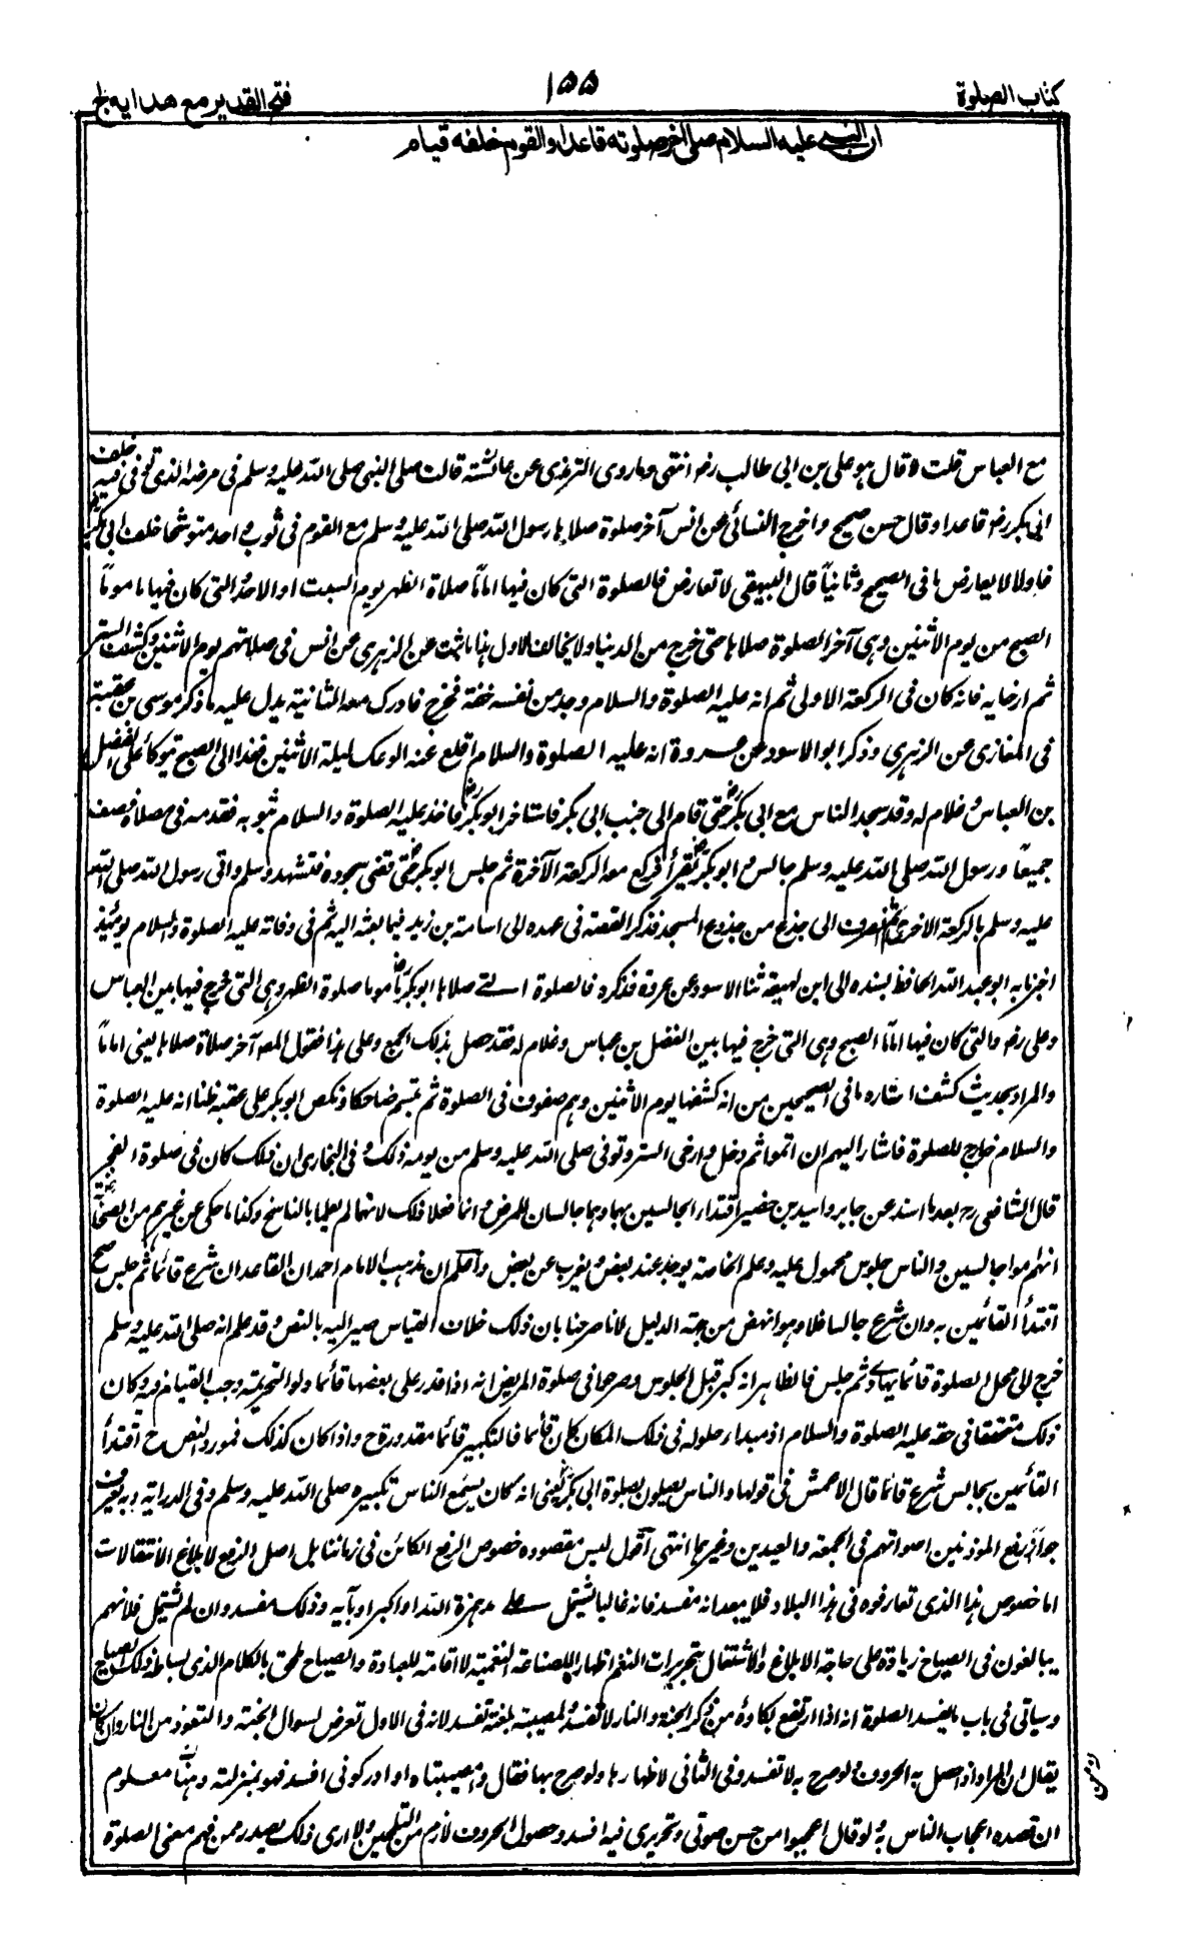 كتاب الصلوة
١٥٥
فتح القدير مع هدايه ج ا
ان النبي عليه السلام صلى آخر صلوته قاعدا والقوم خلفه قيام
مع العباس قلت لا قال هو علي بن ابي طالب رضه انتهى وما روى الترمذي عن عائشة قالت صلى النبي صلى الله عليه وسلم في مرضه الذي توفي فيه خلف
ابي بكر رضه قاعدا وقال حسن صحيح واخرج النسائي عن انس آخر صلوة صلاها رسول الله صلى الله عليه وسلم مع القوم في ثوب واحد متوشحا خلف ابي بكر رضه
فاولا لا يعارض ما في الصحيح وثانياً قال البيهقي لا تعارض فالصلوة التي كان فيها اماماً صلاة الظهر يوم السبت او الاحد والتي كان فيها ماموماً
الصبح من يوم الاثنين وهي آخر الصلوة صلاها حتى خرج من الدنيا ولا يخالف الاول هذا ما ثبت عن الزهري عن انس في صلاتهم يوم الاثنين وكشف الستر
ثم ارخايه فانه كان في الركعة الاولى ثم انه عليه الصلوة والسلام وجد من نفسه خفة فخرج فادرك معه الثانية يدل عليه ما ذكر موسى بن عقبة
في المغازي عن الزهري وذكر ابو الاسود عن عروة انه عليه الصلوة والسلام اقلع عنه الوعك ليلة الاثنين فغدا الى الصبح يتوكأ على الفضل
بن العباس وغلام له وقد سجد الناس مع ابي بكر رضه حتى قام الى جنب ابي بكر فاستاخر ابو بكر رضه فاخذ عليه الصلوة والسلام بثوبه فقدمه في مصلاه فصف
جميعا ورسول الله صلى الله عليه وسلم جالس وابو بكر رضه يقرأ فركع معه الركعة الآخرة ثم جلس ابو بكر رضه حتى قضى سجوده فتشهد وسلم واتى رسول الله صلى الله
عليه وسلم بالركعة الاخرى ثم انصرف الى جذع من جذوع المسجد فذكر القصة في عهده الى اسامة بن زيد فيما بعثه اليه ثم في وفاته عليه الصلوة والسلام يومئذ
اخبرنا به ابو عبد الله الحافظ بسنده الى ابن لهيعة ثنا الاسود عن عروة فذكره فالصلوة التي صلاها ابو بكر رضه ماموما صلوة الظهر وهي التي خرج فيها بين العباس
وعلي رضه والتي كان فيها اماما الصبح وهي التي خرج فيها بين الفضل بن عباس وغلام له فقد حصل بذلك الجمع وعلى هذا فقول المصه آخر صلاة صلاها يعني اماماً
والمراد بحديث كشف استاره ما في الصحيحين من انه كشفها يوم الاثنين وهم صفوف في الصلوة ثم تبسم ضاحكا ونكص ابو بكر على عقبه ظنا انه عليه الصلوة
والسلام خارج للصلوة فاشار اليهم ان اتموا ثم دخل وارخى الستر وتوفي صلى الله عليه وسلم من يومه ذلك وفي البخاري ان ذلك كان في صلوة الفجر
قال الشافعي رح بعد ما اسند عن جابر واسيد بن حضير اقتداء الجالسين بهما وهما جالسان للمرض وانما فعلا ذلك لانهما لم يعلما بالناسخ وكذا ما حكي عن غيرهم من الصحابة
انهم اموا جالسين والناس جلوس محمول عليه وعلم الخاصة يوجد عند بعض ويغرب عن بعض واعلم ان مذهب الامام احمد ان القاعد ان شرع قائما ثم جلس صح
اقتدأ القائمين به وان شرع جالسا فلا وهو انهض من جهة الدليل لانا صرحنا بان ذلك خلاف القياس صير اليه بالنص وقد علم انه صلى الله عليه وسلم
خرج الى محل الصلوة قائما يهادى ثم جلس فالظاهر انه كبر قبل الجلوس وصرحوا في صلوة المريض انه اذا قدر على بعضها قائما ولو التحريمة وجب القيام فيه وكان
ذلك متحققا في حقه عليه الصلوة والسلام اذ مبدأ حلوله في ذلك المكان كان قائما فالتكبير قائما مقدوره ح واذا كان كذلك فمورد النص ح اقتدأ
القائمين بجالس شرع قائما قال الاعمش في قولها والناس يصلون بصلوة ابي بكر رضه يعني انه كان يسمع الناس تكبيره صلى الله عليه وسلم وفي الدراية وبه يعرف
جواز رفع الموذنين اصواتهم في الجمعة والعيدين وغيرهما انتهى اقول ليس مقصوده خصوص الرفع الكائن في زماننا بل اصل الرفع لابلاغ الانتقالات
اما خصوص هذا الذي تعارفوه في هذا البلاد فلا يبعد انه مفسد فانه غالبا يشتمل على مد همزة الله او اكبر او بآيه وذلك مفسد وان لم يشتمل فلانهم
يبالغون في الصياح زيادة على حاجة الابلاغ والاشتغال بتحريرات النغم اظهارا للصناعة النغمية لا اقامة للعبادة والصياح ملحق بالكلام الذي بساطه ذلك الصياح
وسياتي في باب ما يفسد الصلوة انه اذا ارتفع بكاؤه من ذكر الجنة والنار لا تفسد ولمصيبة بلغته تفسد لانه في الاول تعرض لسوال الجنة والتعوذ من النار وان كان
يقال ان المراد اذا حصل به الحروف ولو صرح به لا تفسد وفي الثاني لاظهارها ولو صرح بها فقال وامصيبتاه او ادركوني افسد فهو بمنزلته وهنا معلوم
ان قصده اعجاب الناس به ولو قال اعجبوا من حسن صوتي وتحريري فيه افسد وحصول الحروف لازم من التلحين ولا ارى ذلك يصدر ممن فهم معنى الصلوة